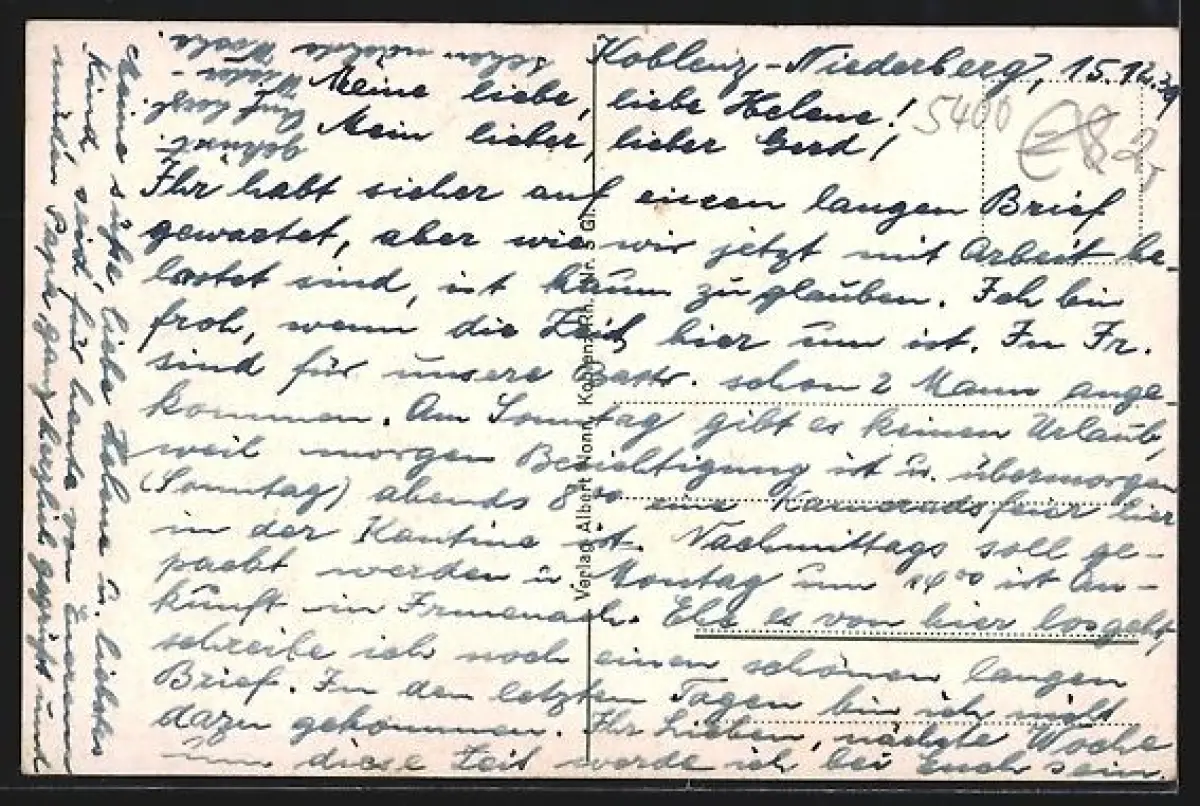 Koblenz-Niederberg, 15.12.39
Meine liebe, liebe Helene!
Mein lieber, lieber Gerd!
Ihr habt sicher auf einen langen Brief
gewartet, aber wie wir jetzt mit Arbeit be-
lastet sind, ist kaum zu glauben. Ich bin
froh, wenn die Zeit hier um ist. In Fr.
sind für unsere Battr. schon 2 Mann ange-
kommen. Am Sonntag gibt es keinen Urlaub,
weil morgen Besichtigung ist u. übermorgen
(Sonntag) abends 8⁰⁰ eine Kameradsfeier hier
in der Kantine ist. Nachmittags soll ge-
packt werden u. Montag um 14⁰⁰ ist An-
kunft in Irmenach. Ehe es von hier losgeht,
schreibe ich noch einen schönen langen
Brief. In den letzten Tagen bin ich nicht
dazu gekommen. Ihr Lieben, nächste Woche
um diese Zeit werde ich bei Euch sein.
Meine süße, liebe Helene u. liebstes
Kind, seid für heute von Eurem
müden Papa ganz herzlich gegrüßt und
geküsst.
Auf
Wieder-
schon nächste Woche.
5400
Verlag Albert Nonn, Koblenz a. Rh. Nr. 5 Gl.